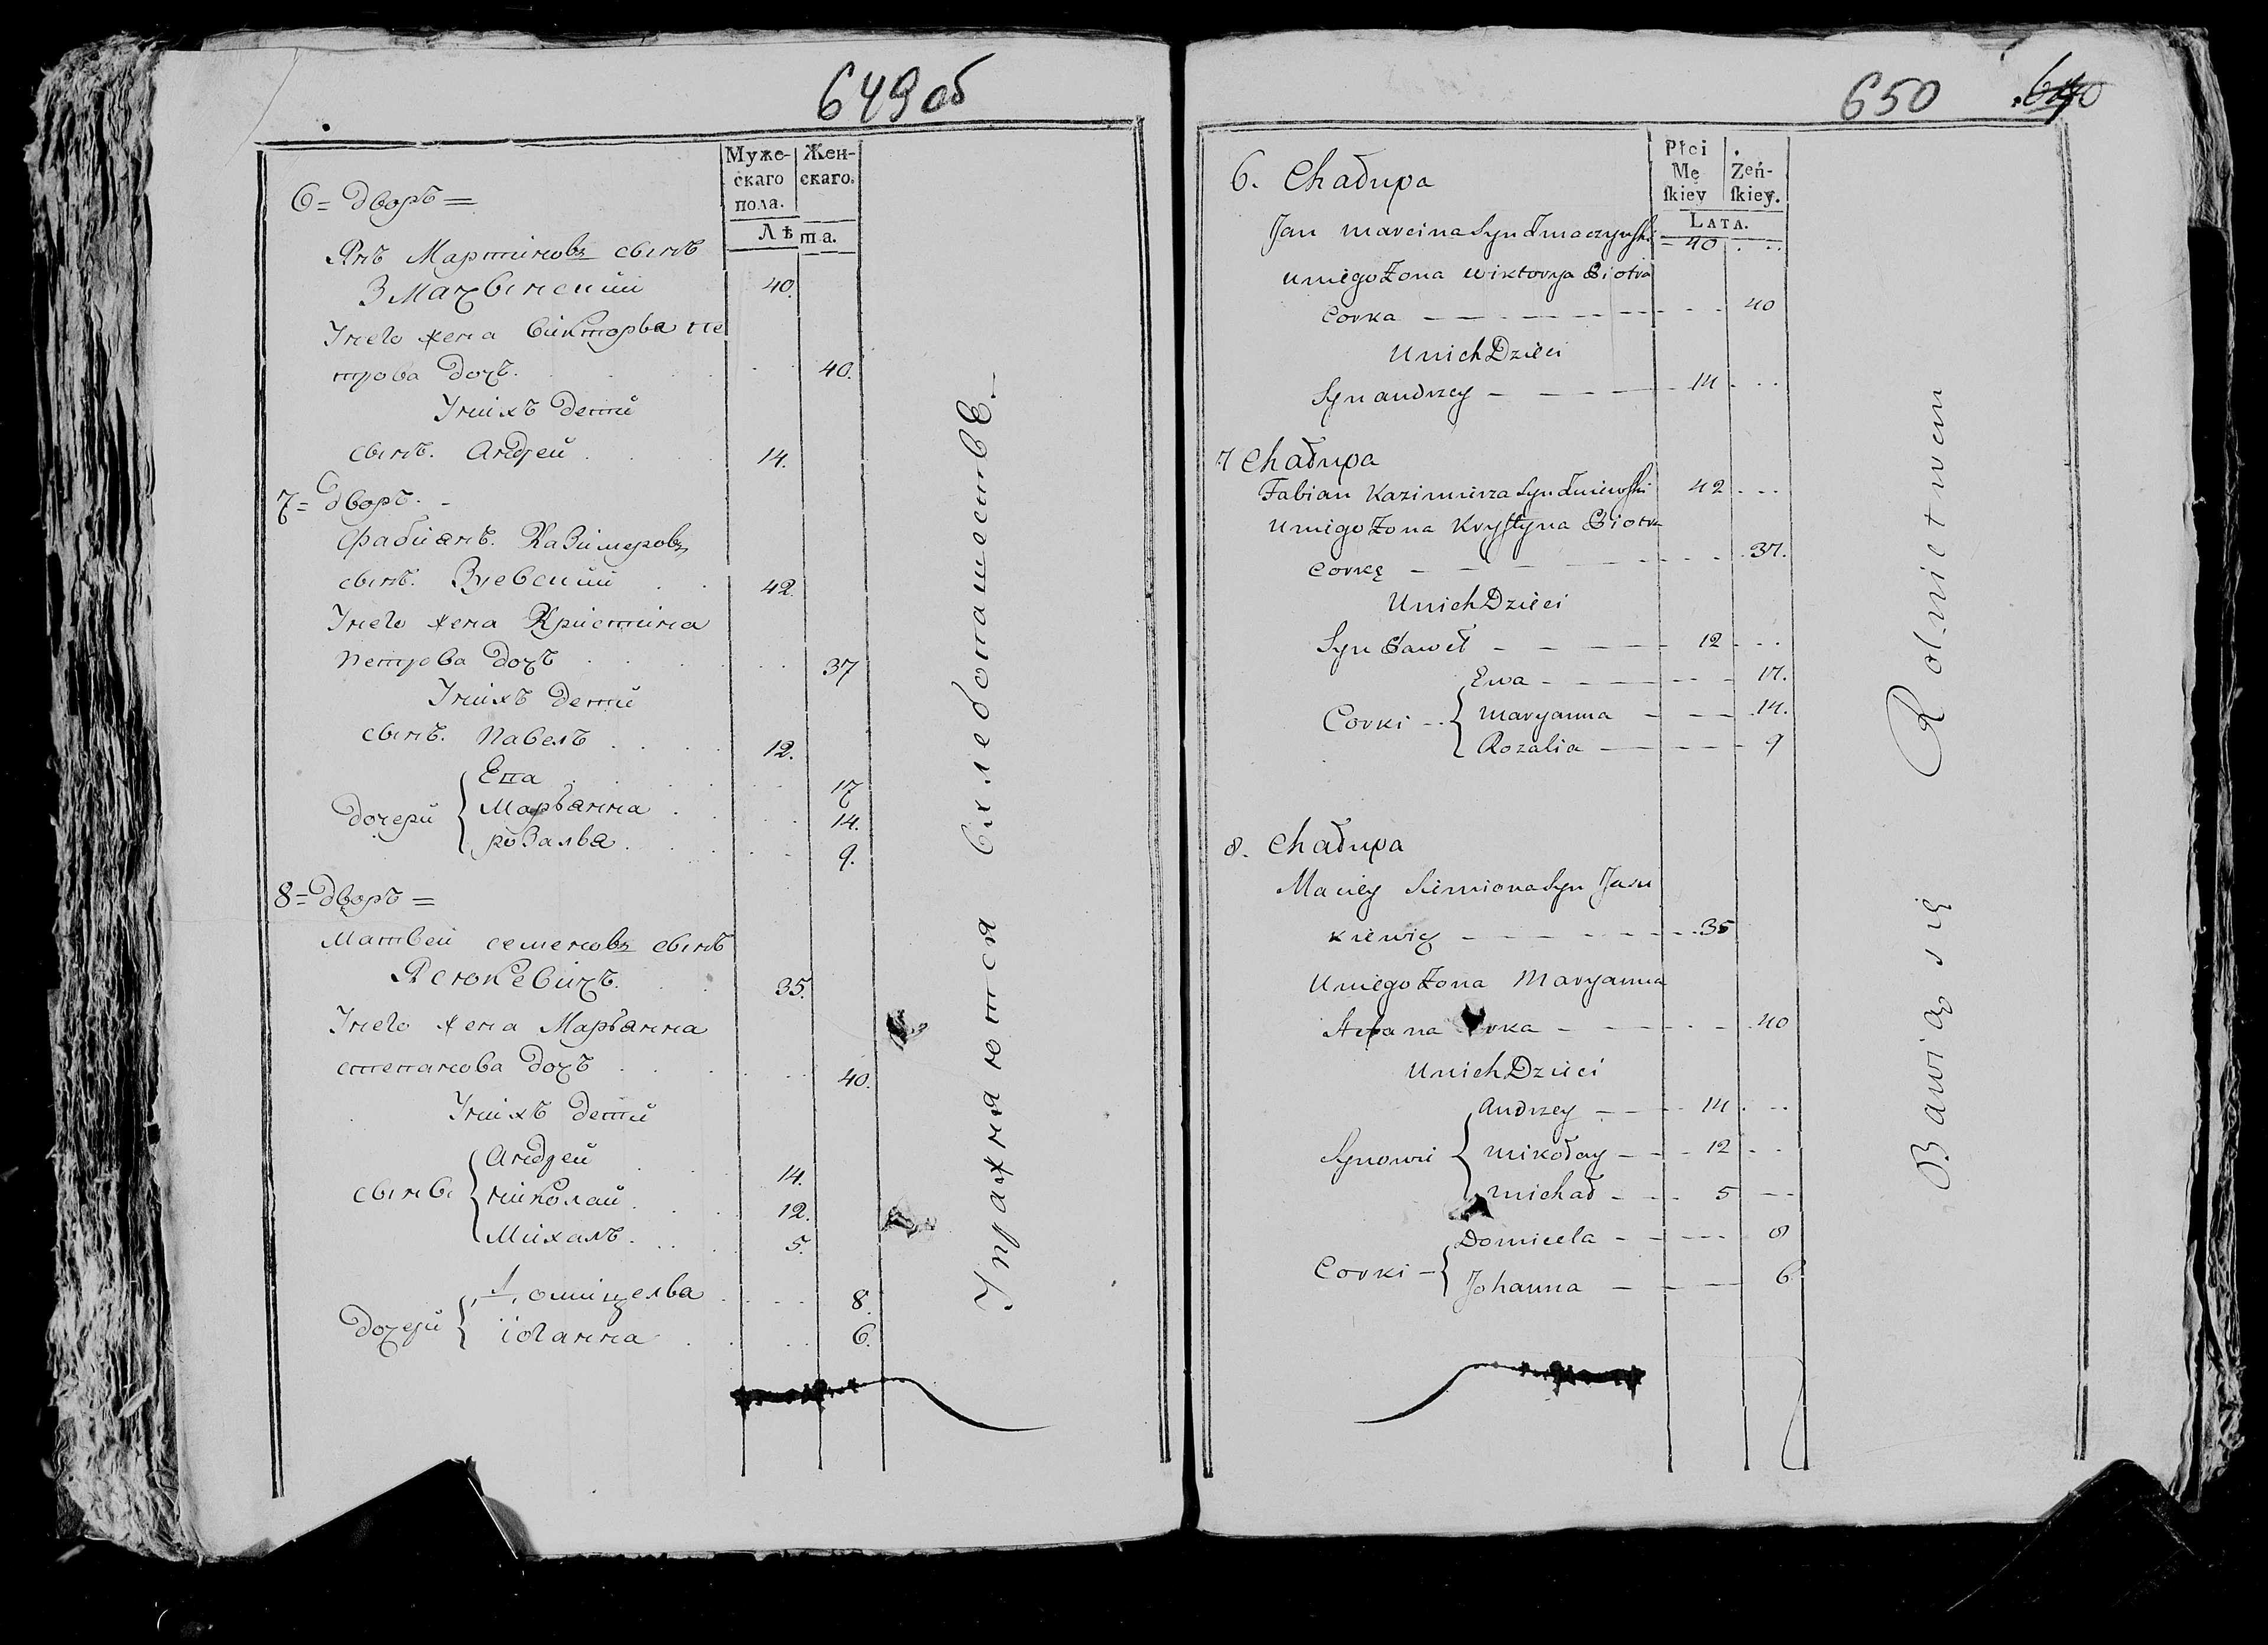 649 об
Муже-
скаго
пола.
Жен-
скаго.
Лѣта.
6 = дворъ =
Янъ Мартиновъ сынъ
Змачынский 40.
У него жена Викторыа пе
трова дочъ. 40.
У нихъ дети
сынъ. Андрей 14.
7 = дворъ. -
Фабиянъ. Казимеровъ
сынъ. Зневский 42.
У него жена Кристина
петрова дочъ 37
У нихъ дети
сынъ. Павелъ 12.
дочери { Ева 17
Марыанна 14.
розалыа 9.
8 = дворъ =
Матвей семеновъ сынъ
Ясюкевичъ. 35.
У него жена Марыанна
степанова дочъ 40.
У нихъ дети
сыны { Андрей 14.
николай 12.
Михалъ 5.
дочери { Домицелыа 8.
иоганна 6.
Упражняются в хлебопашестве.
650 640
Płci
Mę
skiey
Żeń-
skiey.
LATA.
6. Chałupa
Jan Marcina Syn Zmaczynski 40
U niego Żona Wiktorya Piotra
Corka 40
U nich Dzieci
Syn Andrzey 14
7 Chałupa
Fabian Kazimirza Syn Zniewski 42
U niego Żona Krystyna Piotra
Corkę 37.
U nich Dzieci
Syn Paweł 12
Corki { Ewa 17.
Maryanna 14.
Rozalia 9
8. Chałupa
Maciey Siemiona Syn Jasu
kiewicz 35
U niego Żona Maryanna
Stefana Corka 40
U nich Dzieci
Synowie { Andrzey 14
Mikołay 12
Michał 5
Corki { Domicela 8
Johanna 6
Bawią się Rolnictwem